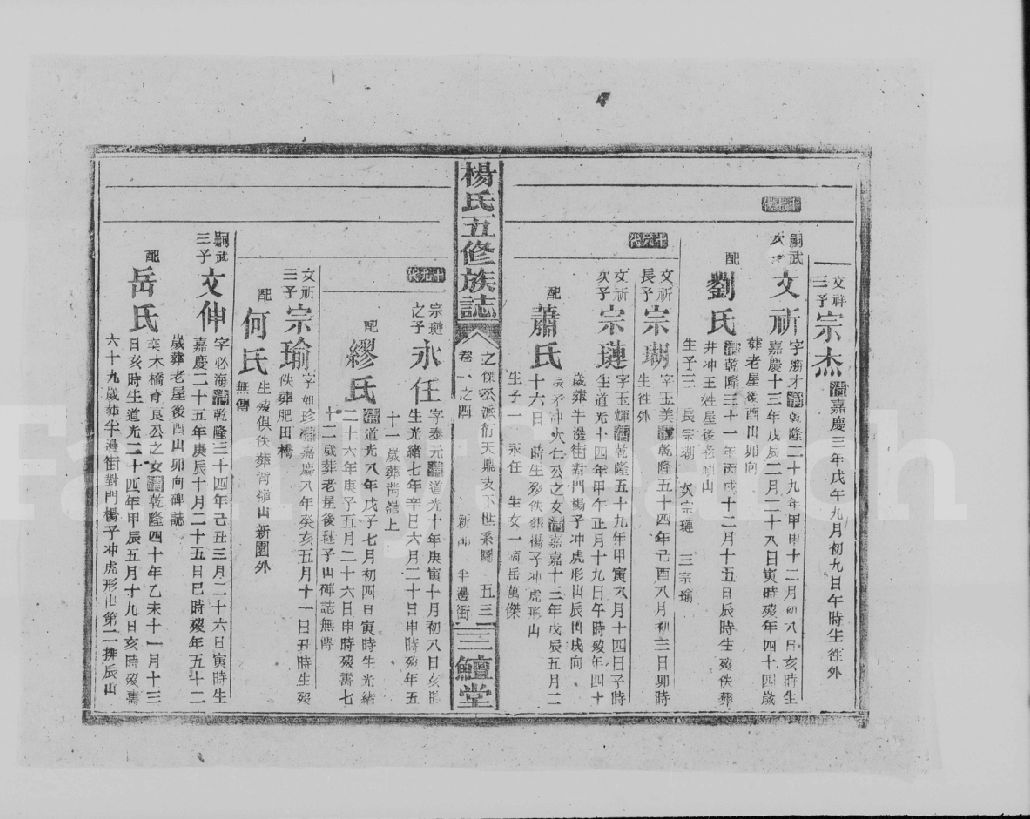 文祥三子
宗杰
清嘉慶三年戊午九月初九日午時生徃外
嗣武次子
文祈
字 才清乾隆二十九年甲申十二月初八日亥時生
嘉慶十三年戊辰二月二十八日寅時歿年四十四歲
葬老屋後酉山卯向
配
劉氏
清乾隆三十一年丙戌十二月十五日辰時生歿佚葬
井冲王姓屋後 山
生子三 長宗瑚 次宗璉 三宗瑜
文祈長子
宗瑚
字玉美清乾隆五十四年己酉八月初三日卯時
生徃外
文祈次子
宗璉
字玉輝清乾隆五十九年甲寅八月十四日子時
生道光十四年甲午正月十九日午時歿年四十
歲葬半邊街對門楊子冲虎形山辰山戌向
配
蕭氏
冲 仁公之女清嘉慶十三年戊辰五月二
十六日 時生歿佚葬楊子冲虎形山
生子一 永任 生女一適岳萬傑
楊氏五修族誌
卷 一之四
五三
半邊街
三鱣堂
宗璉之子
永任
字泰元清道光十年庚寅十月初八日亥時
生光緒七年辛巳六月二十日申時歿年五
十一歲葬 嶺上
配
繆氏
清道光八年戊子七月初四日寅時生光緒
二十六年庚子五月二十六日申時歿壽七
十二歲葬老屋後 山碑誌無傳
文祈三子
宗瑜
字如珍清嘉慶八年癸亥五月十一日丑時生歿
佚葬肥田橋
配
何氏
生歿俱佚葬 山新園外
無傳
嗣武三子
文伸
字必海清乾隆三十四年己丑三月二十六日寅時生
嘉慶二十五年庚辰十月二十五日巳時歿年五十二
歲葬老屋後酉山卯向碑誌
配
岳氏
木橋 良公之女清乾隆四十年乙未十一月十三
日亥時生道光二十四年甲辰五月十九日亥時歿壽
六十九歲葬半邊街對門楊子冲虎形山第二排辰山
FamilySearch